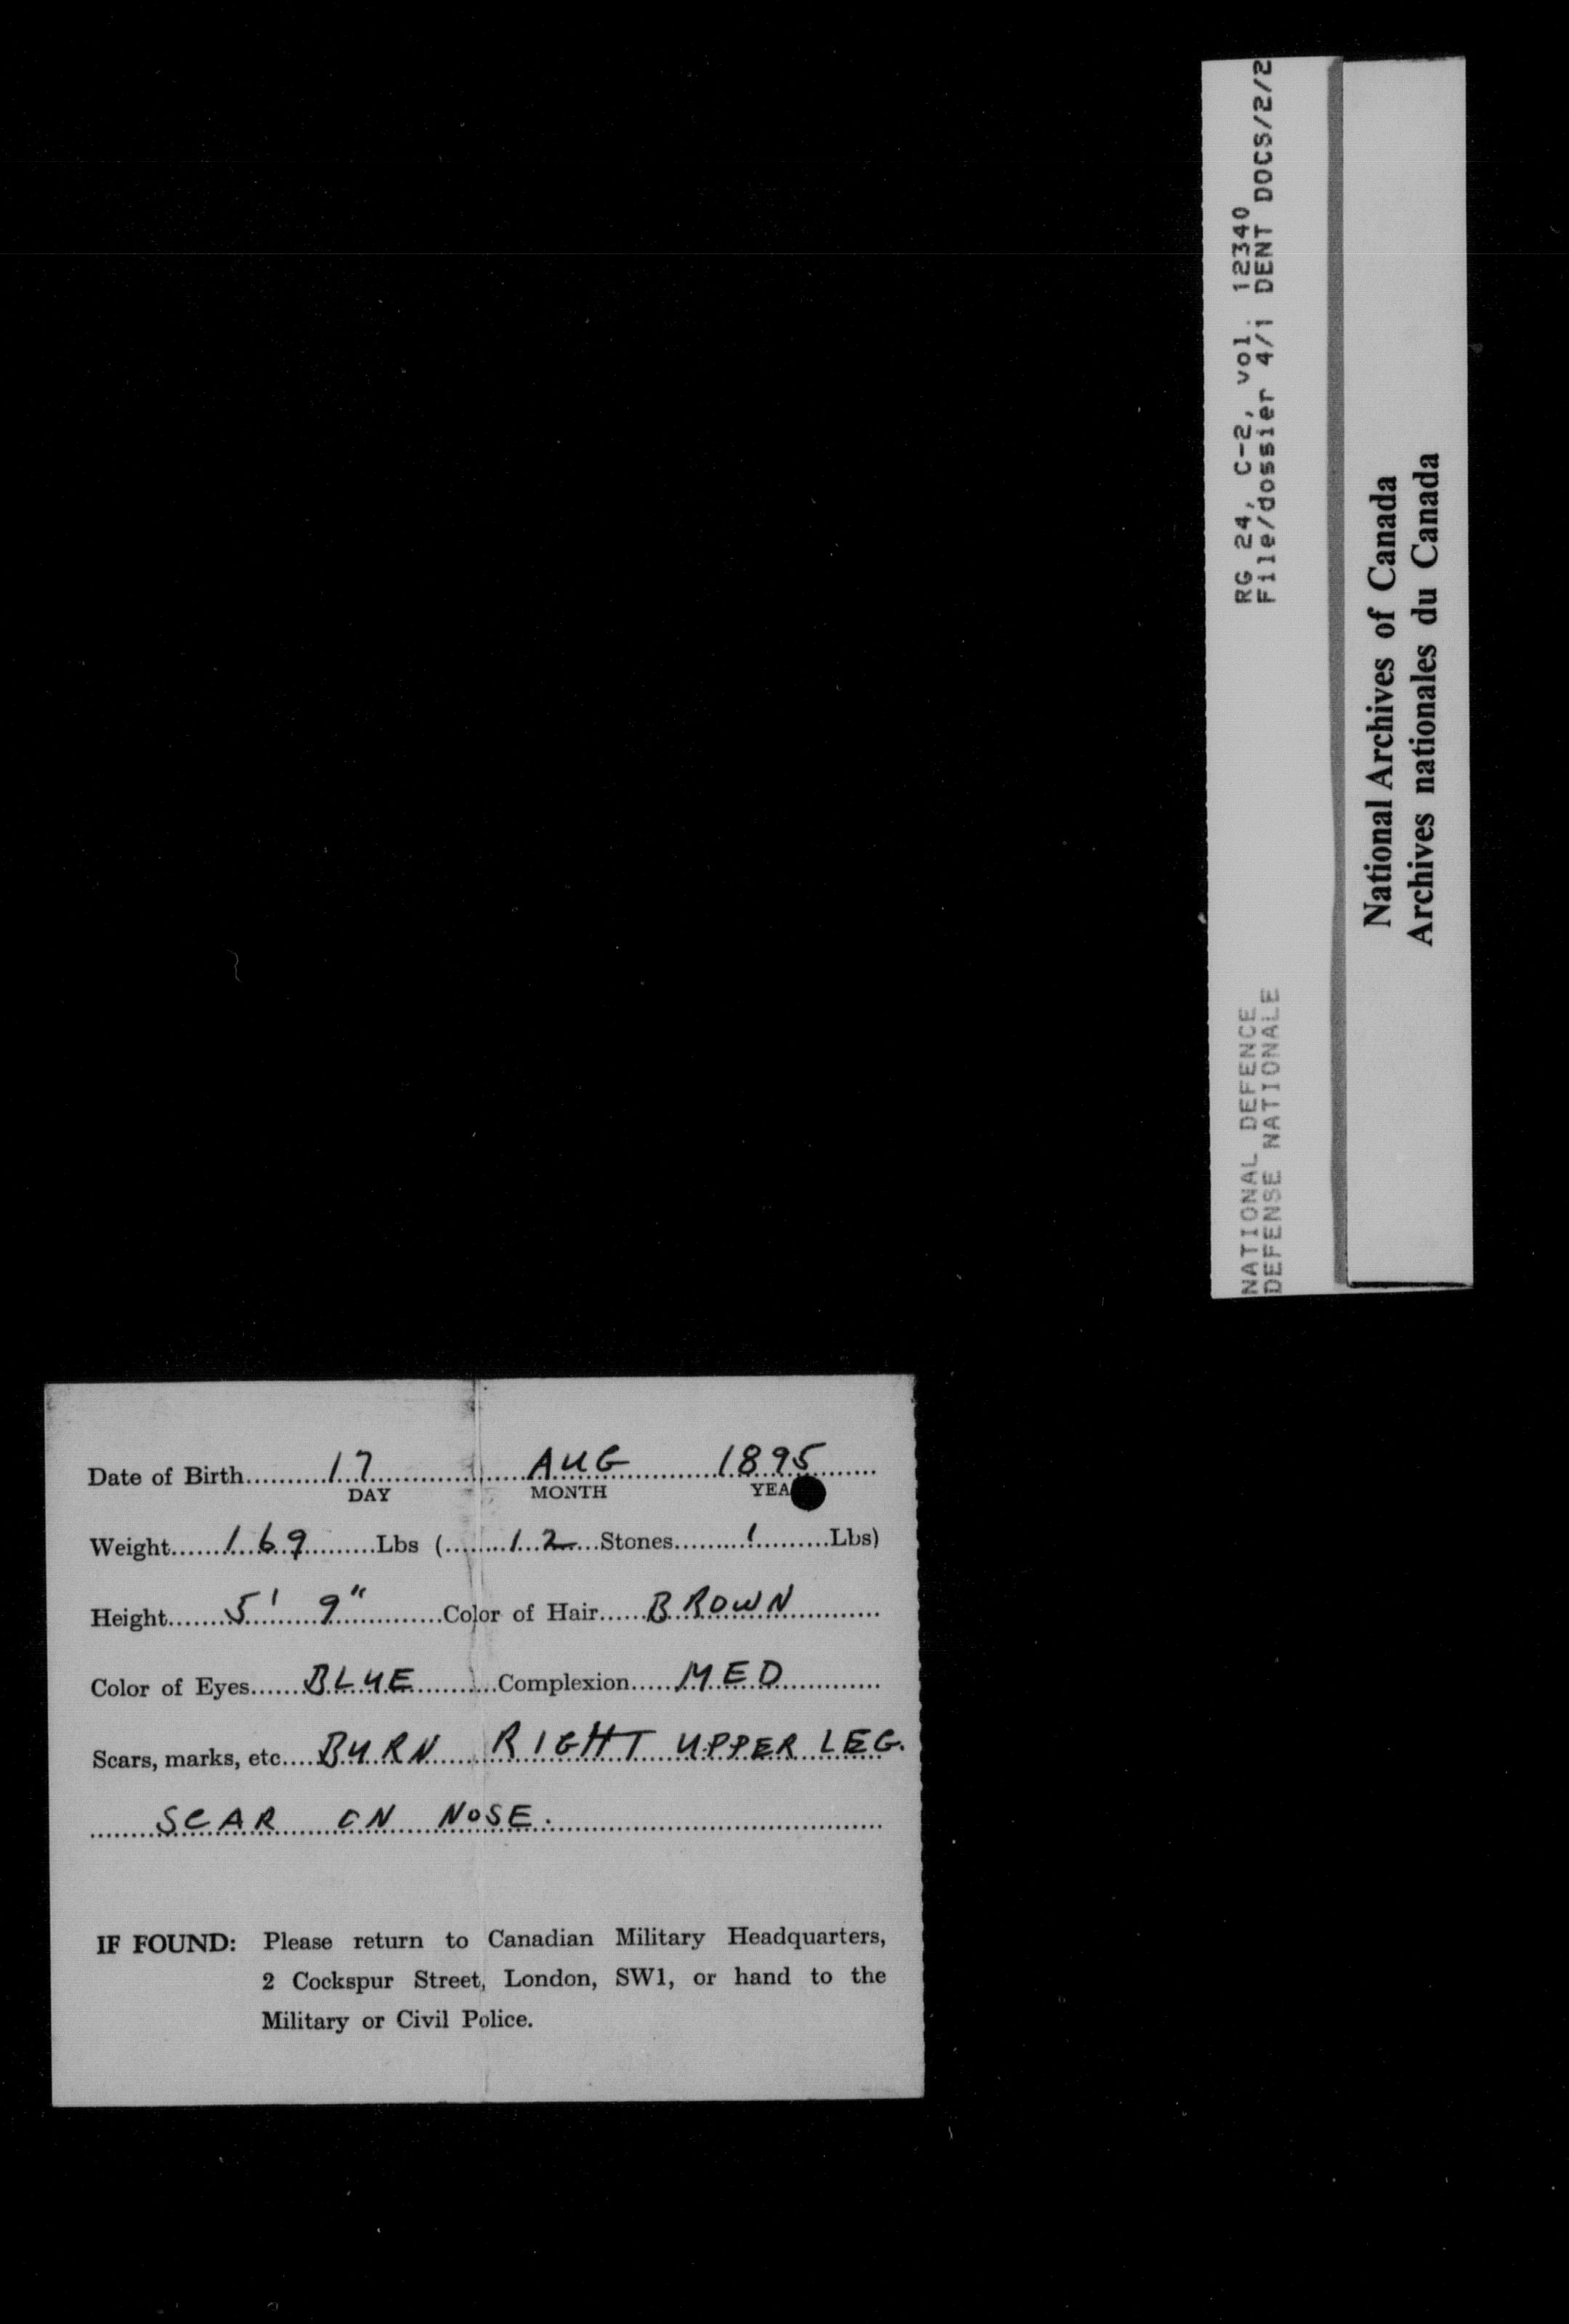 RG 24, C-2, vol. 12340
File/dossier 4/1 DENT DOCS/2/2
NATIONAL DEFENCE
DEFENSE NATIONALE
National Archives of Canada
Archives nationales du Canada
Date of Birth..........17..........AUG..........1895......
DAY MONTH YEA
Weight.......169.........Lbs (.......12...Stones.........1.........Lbs)
Height.......5' 9"............Color of Hair......BROWN............
Color of Eyes......BLUE............Complexion......MED............
Scars, marks, etc....BURN RIGHT UPPER LEG.
........SCAR ON NOSE.......................................
IF FOUND: Please return to Canadian Military Headquarters,
2 Cockspur Street, London, SW1, or hand to the
Military or Civil Police.